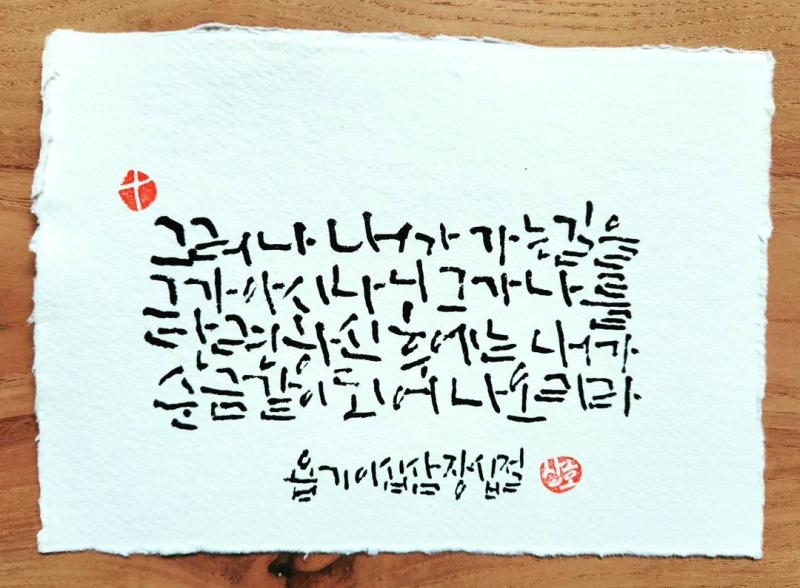 그러나 내가 가는 길을
그가 아시나니 그가 나를
단련하신 후에는 내가
순금 같이 되어 나오리라
욥기 이십삼장 십절
상호